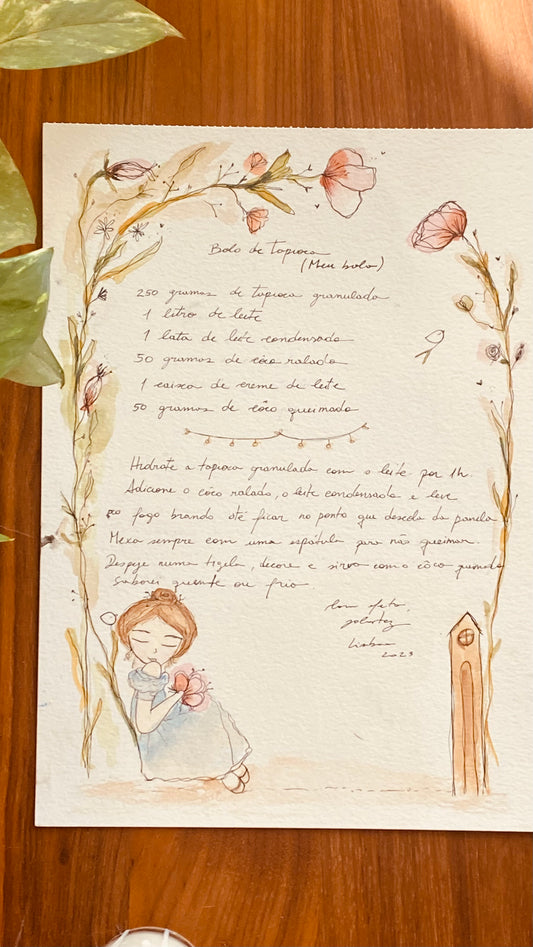 Bolo de Tapioca
(Meu bolo)
250 gramas de tapioca granulada
1 litro de leite
1 lata de leite condensado
50 gramas de côco ralado
1 caixa de creme de leite
50 gramas de côco queimado
Hidrate a tapioca granulada com o leite por 1h.
Adicione o côco ralado, o leite condensado e leve
ao fogo brando até ficar no ponto que descola da panela
Mexa sempre com uma espátula para não queimar.
Despeje numa tigela, decore e sirva com o côco queimado
Saborei quente ou frio
Com afeto,
Lisboa
2023